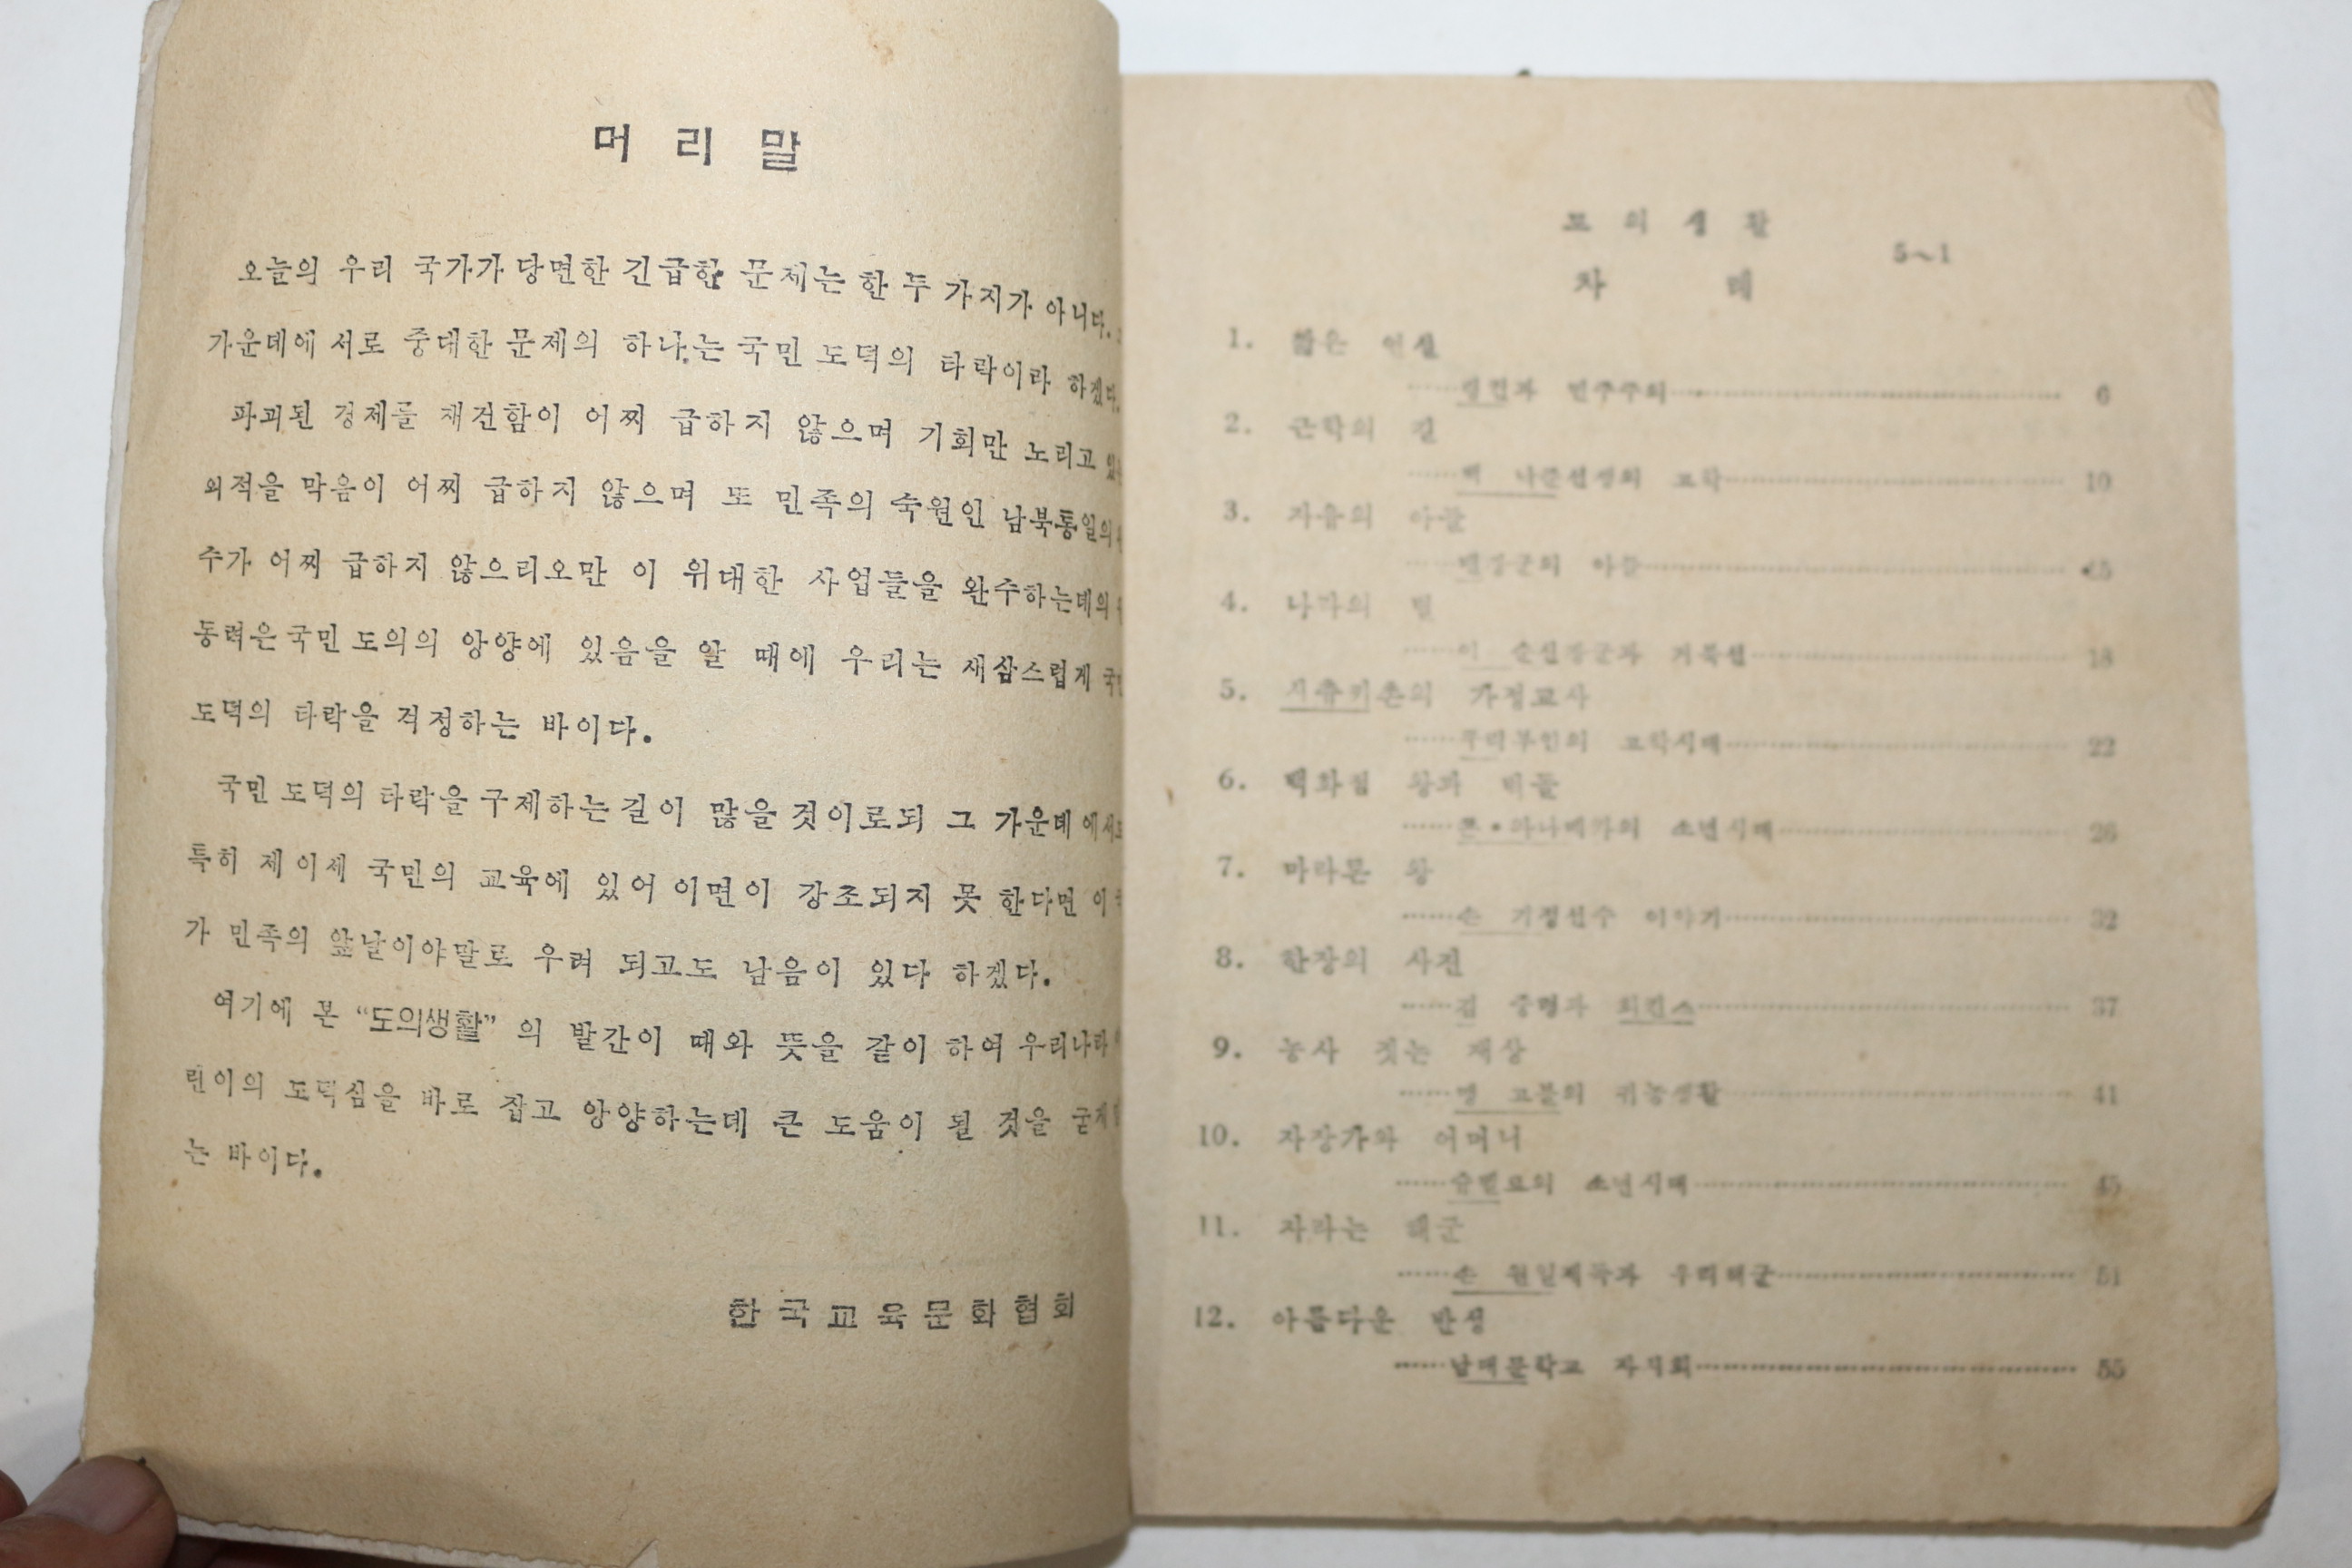 머리말
오늘의 우리 국가가 당면한 긴급한 문제는 한 두 가지가 아니다.
가운데에 서로 중대한 문제의 하나는 국민 도덕의 타락이라 하겠다.
파괴된 경제를 재건함이 어찌 급하지 않으며 기회만 노리고
외적을 막음이 어찌 급하지 않으며 또 민족의 숙원인 남북통일의
수가 어찌 급하지 않으리오만 이 위대한 사업들을 완수하는데의
동력은 국민 도의의 앙양에 있음을 알 때에 우리는 새삼스럽게
도덕의 타락을 걱정하는 바이다.
국민 도덕의 타락을 구제하는 길이 많을 것이로되 그 가운데에서도
특히 제이세 국민의 교육에 있어 이면이 강조되지 못 한다면 이
가 민족의 앞날이야말로 우려 되고도 남음이 있다 하겠다.
여기에 본 “도의생활” 의 발간이 때와 뜻을 같이 하여 우리나라
린이의 도덕심을 바로 잡고 앙양하는데 큰 도움이 될 것을 굳게
는 바이다.
한국교육문화협회
도의생활
5~1
차례
1.
링컨과 민주주의 6
2. 근학의 길
10
3. 자유의 아들
아들
4. 나라의
이 순신장군과 거북선 18
5. 의 가정교사
퀴리부인의 고학시대 22
6. 백화점 왕과
소년시대 26
7. 마라톤 왕
손 기정선수 이야기 32
8. 한장의 사진
37
9. 농사 짓는 재상
맹 고불의 귀농생활 41
10. 자장가와 어머니
소년시대 45
11. 자라는 해군
손 원일제독과 우리해군 51
12. 아름다운 반성
남대문학교 자치회 55